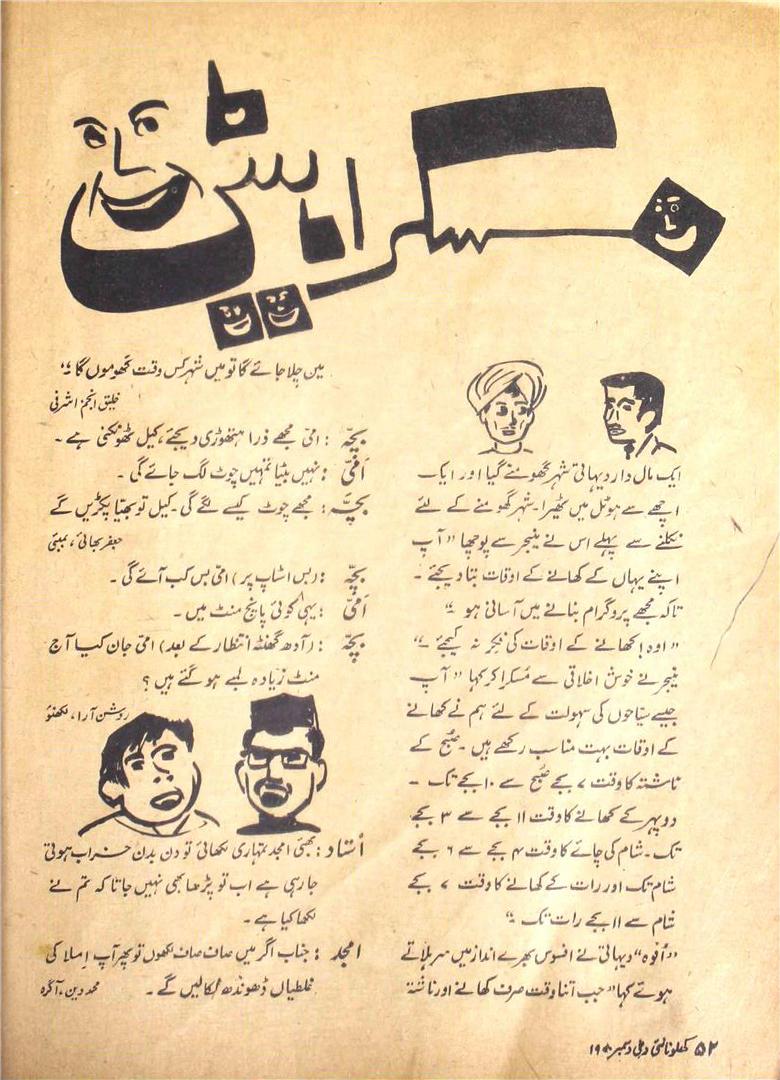 مسکراہٹیں
ایک مال دار دیہاتی شہر گھومنے گیا اور ایک
اچھے سے ہوٹل میں ٹھیرا۔ شہر گھومنے کے لئے
نکلنے سے پہلے اس نے مینجر سے پوچھا "آپ
اپنے یہاں کے کھانے کے اوقات بتا دیجئے ۔
تاکہ مجھے پروگرام بنانے میں آسانی ہو ۔"
"اوہ! کھانے کے اوقات کی فکر نہ کیجئے ۔"
مینجر نے خوش اخلاقی سے مُسکرا کر کہا "آپ
جیسے سیّاحوں کی سہولت کے لئے ہم نے کھانے
کے اوقات بہت مناسب رکھے ہیں ۔ صبح کے
ناشتہ کا وقت ۷ بجے صبح سے ۱۰ بجے تک ۔
دوپہر کے کھانے کا وقت ۱۱ بجے سے ۳ بجے
تک ۔ شام کی چائے کا وقت ۴ بجے سے ۶ بجے
شام تک اور رات کے کھانے کا وقت ۷ بجے
شام سے ۱۱ بجے رات تک ۔"
"اُفوہ" دیہاتی نے افسوس بھرے انداز میں سر ہلاتے
ہوئے کہا "جب اتنا وقت صرف کھانے اور ناشتہ
میں چلا جائے گا تو میں شہر کس وقت گھوموں گا ۔"
خلیق انجم اشرفی
بچّہ : امّی مجھے ذرا ہتھوڑی دیجئے، کیل ٹھونکنی ہے ۔
اَمّی : نہیں بیٹا تمہیں چوٹ لگ جائے گی ۔
بچّہ : مجھے چوٹ کیسے لگے گی ۔ کیل تو بھیّا پکڑیں گے
جعفر بھائی، بمبئی
بچّہ : (بس اسٹاپ پر) امّی بس کب آئے گی ۔
اَمّی : یہی کوئی پانچ منٹ میں ۔
بچّہ : (آدھ گھنٹہ انتظار کے بعد) امّی جان کیا آج
منٹ زیادہ لمبے ہو گئے ہیں ؟
روشن آرا، لکھنؤ
اُستاد : بھئی امجد تمہاری لکھائی تو دن بدن خراب ہوتی
جا رہی ہے اب تو پڑھا بھی نہیں جاتا کہ تم نے
لکھا کیا ہے ۔
امجد : جناب اگر میں صاف صاف لکھوں تو پھر آپ اِملا کی
غلطیاں ڈھونڈھ نکالیں گے ۔ محمد دین، آگرہ
۵۲ کھلونا نئی دہلی دسمبر